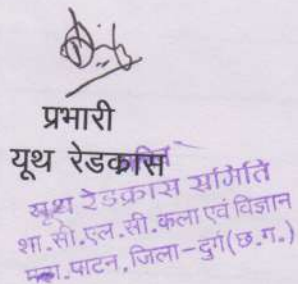 प्रभारी
यूथ रेडक्रास
यूथ रेडक्रास समिति
शा.सी.एल.सी.कला एवं विज्ञान
पाटन, जिला-दुर्ग(छ.ग.)